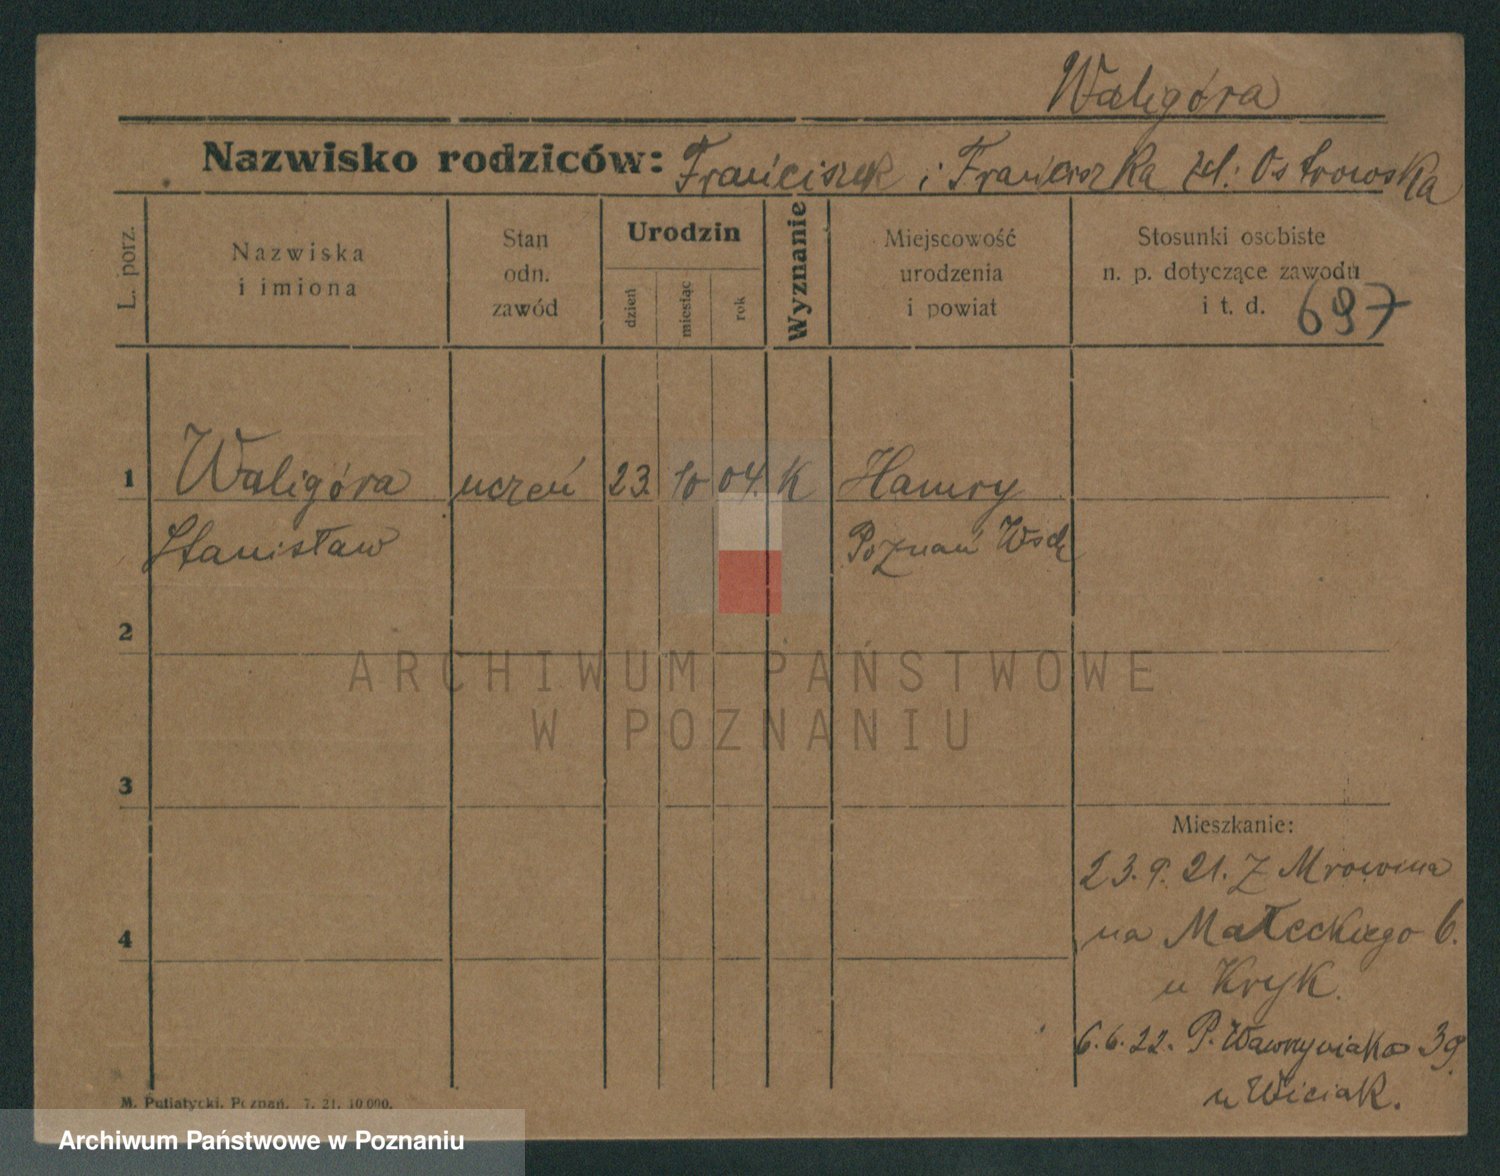 Waligóra
Nazwisko rodziców: Franciszek i Franciszka zd: Ostrowska
L. porz.
Nazwiska
i imiona
Stan
odn.
zawód
Urodzin
dzień
miesiąc
rok
Wyznanie
Miejscowość
urodzenia
i powiat
Stosunki osobiste
n. p. dotyczące zawodu
i t. d. 697
1 Waligóra uczeń 23. 10 04. K Hamry
Stanisław Poznań Wsch
2
3
4
Mieszkanie:
23. 9. 21. z Mrowina
na Małeckiego 6.
u Kryk.
6. 6. 22. P. Wawrzyniaka 39.
u Wiciak.
M. Putiatycki, Poznań. 7. 21. 10 000.
ARCHIWUM PAŃSTWOWE
W POZNANIU
Archiwum Państwowe w Poznaniu